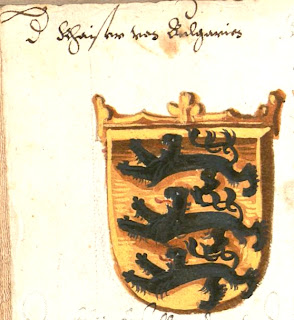 D Khaiser von Bulgarien